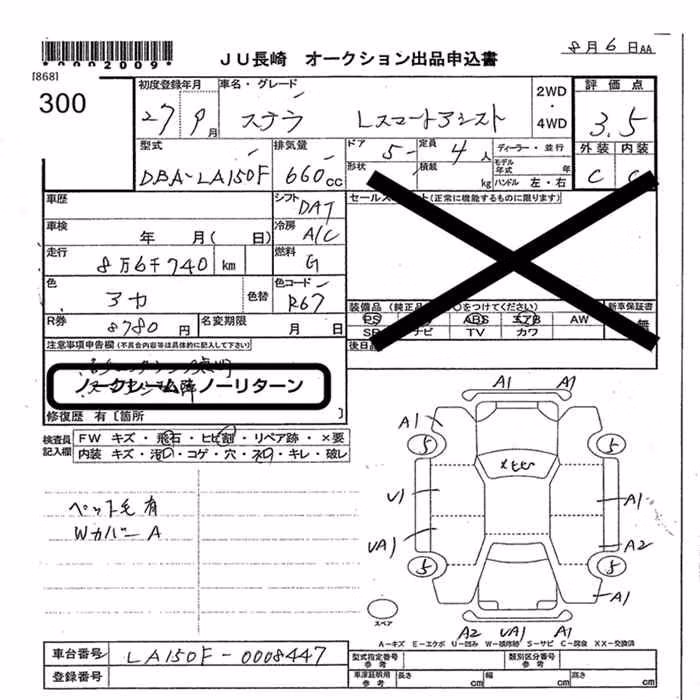 *0002009*
JU長崎 オークション出品申込書
8月6日AA
[868]
300
初度登録年月
車名・グレード
2WD
・
4WD
評価点
27 9月
ステラ Lスマートアシスト
3.5
外装 内装
C C
型式
排気量
ドア
5
定員
4人
ディーラー・並行
DBA-LA150F
660cc
形状
積載
kg
モデル年式 年
ハンドル 左・右
車歴
シフト
DAT
(正常に機能するものに限ります)
車検
年 月( 日)
冷房
A/C
走行
8万6千740 km
燃料
G
色
アカ
色替
色コード
R67
装備品
新車保証書
PS
ABS
エアB
AW
無
ナビ
TV
カワ
R券
8780円
名変期限
月 日
注意事項申告欄(不具合内容等は具体的に記入して下さい)
ノークレーム ノーリターン
修復歴 有〔箇所 〕
検査員記入欄
FW キズ・飛石・ヒビ割・リペア跡・×要
内装 キズ・汚レ・コゲ・穴・スレ・キレ・破レ
ペット毛有
Wカバー A
A1 A1
A1
5 5
U1 A1
UA1 A2
5 5
A1
スペア
A2 UA1 A1
A-キズ E-エクボ U-凹み W-補修跡 S-サビ C-腐食 XX-交換済
車台番号
LA150F-0008447
登録番号
型式指定番号 参考
類別区分番号 参考
車庫証明用 参考
長さ cm
幅 cm
高さ cm